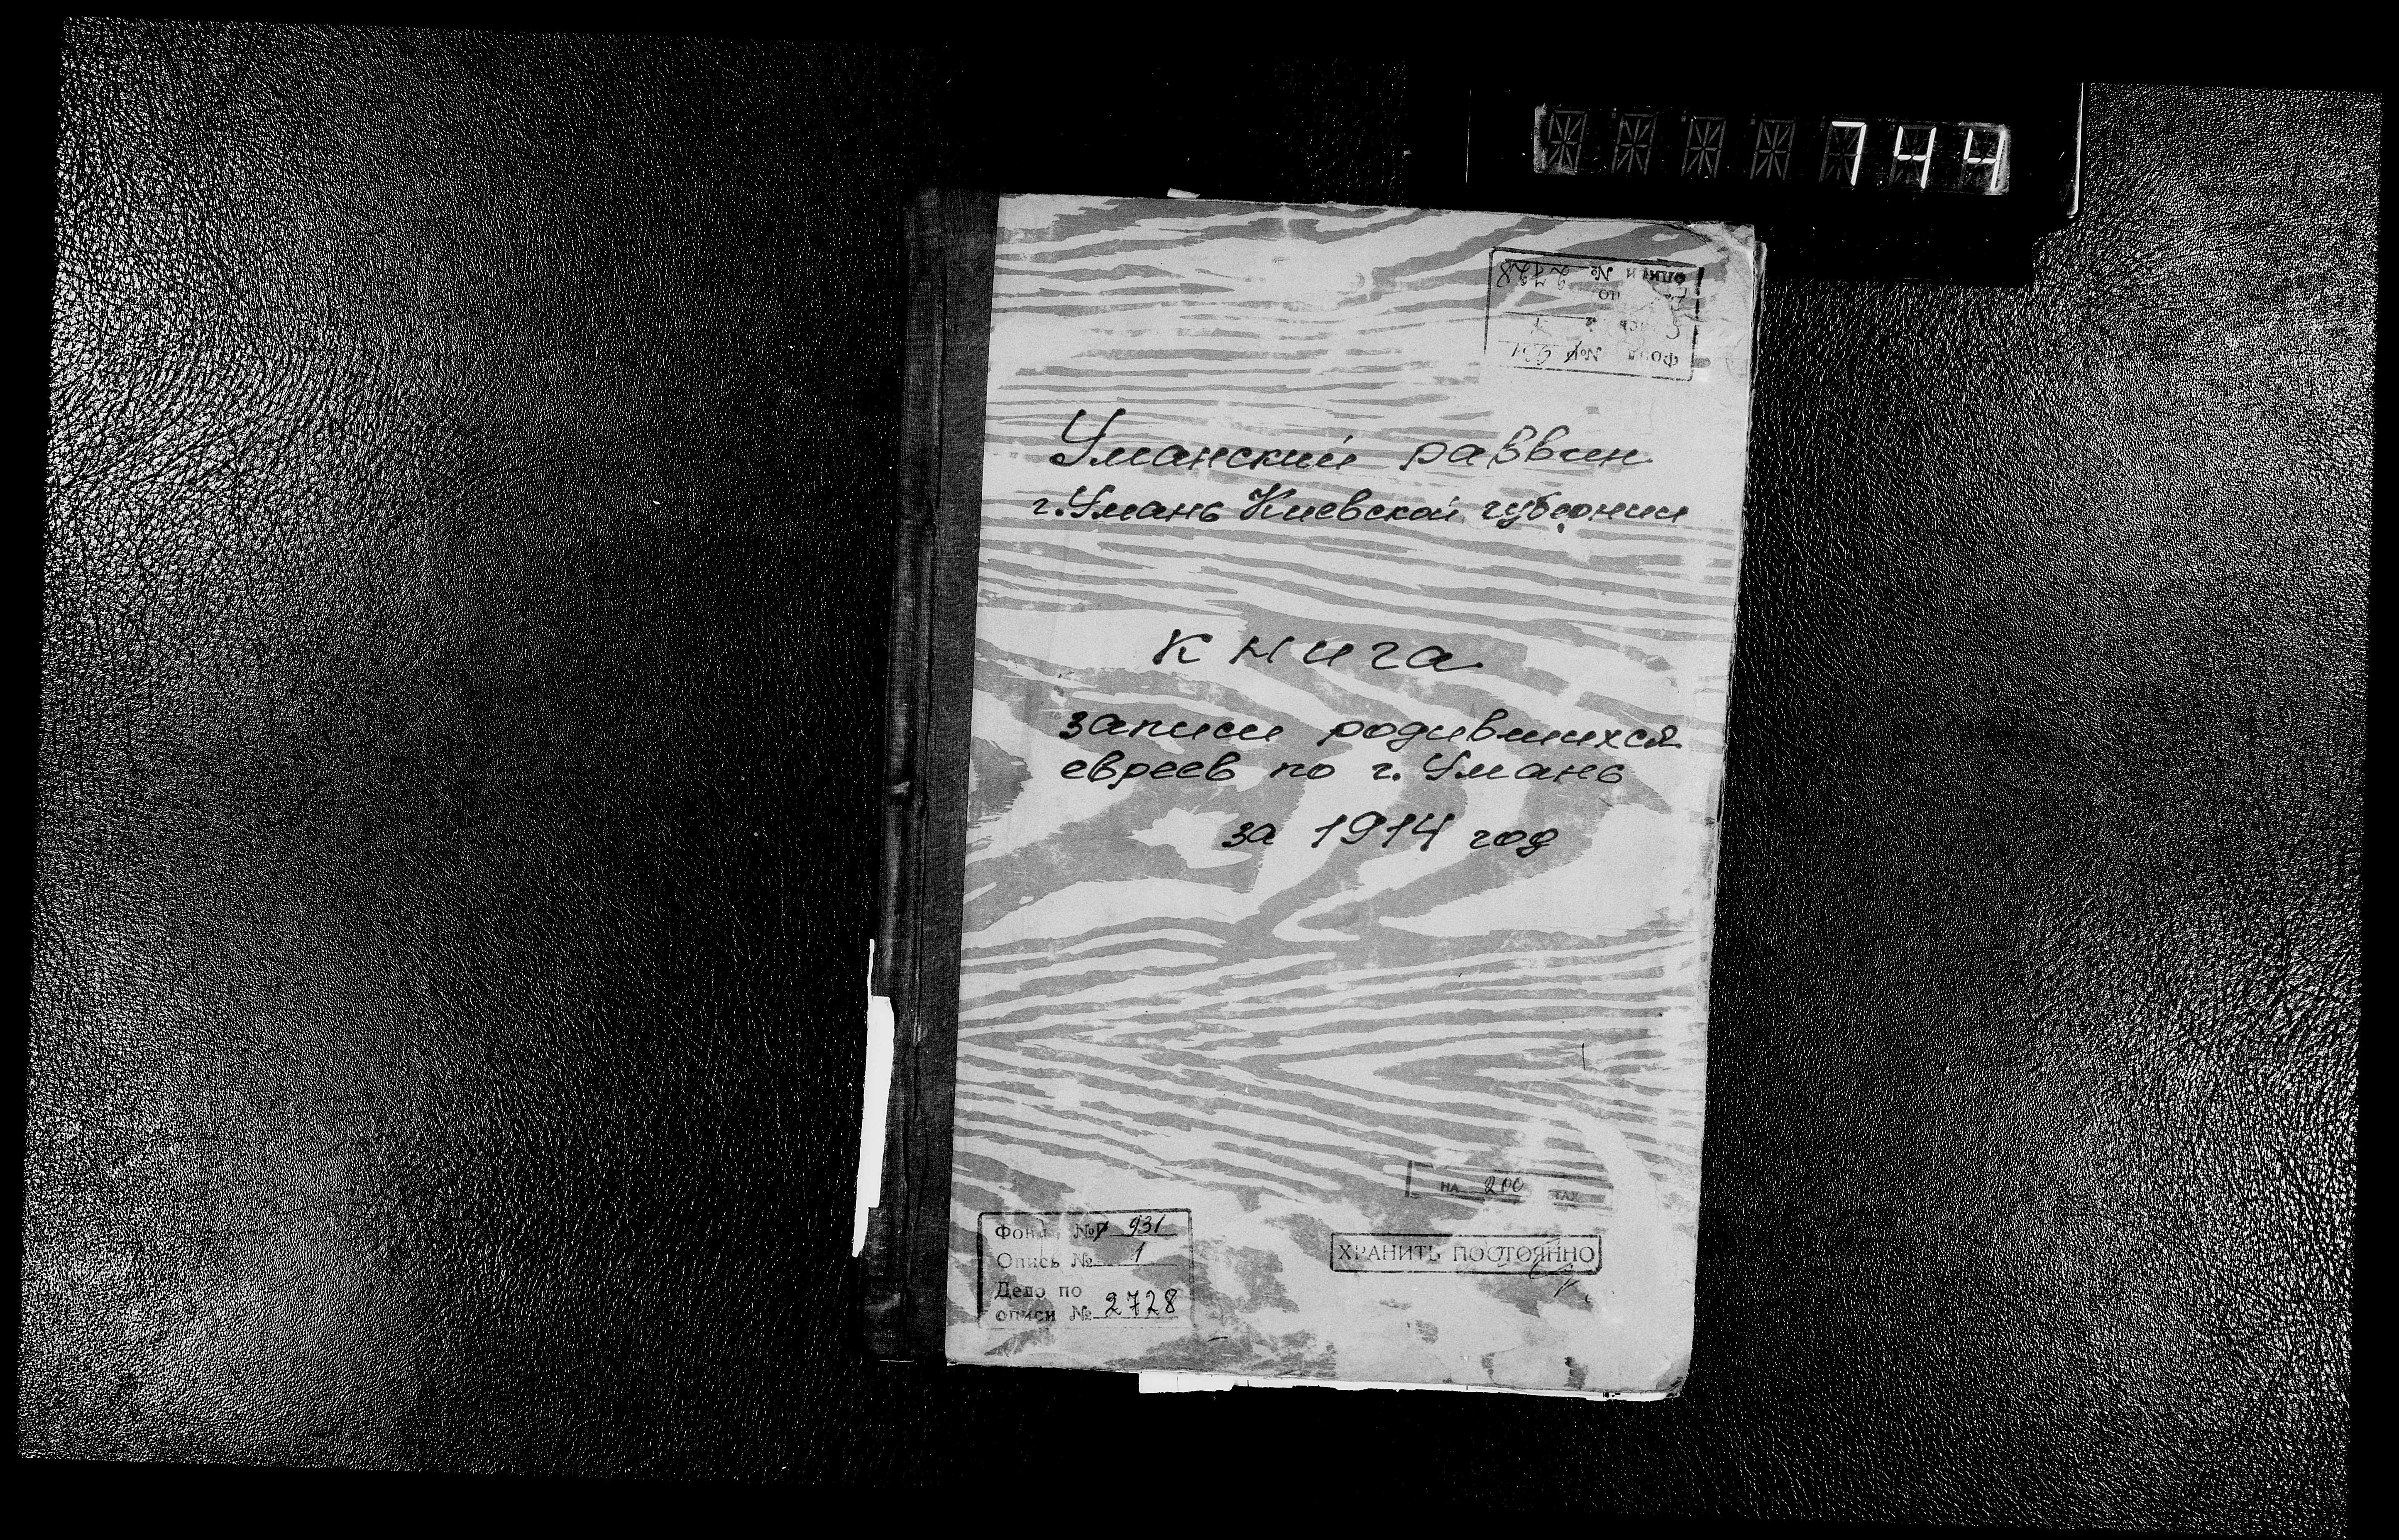 744
описи № 2728
по
Фонд № 931
Уманский раввин
г. Умань Киевской губернии
книга
записи родившихся
евреев по г. Умань
за 1914 год
на 200
Фонд № р 931
Опись № 1
Дело по
описи № 2728
ХРАНИТЬ ПОСТОЯННО